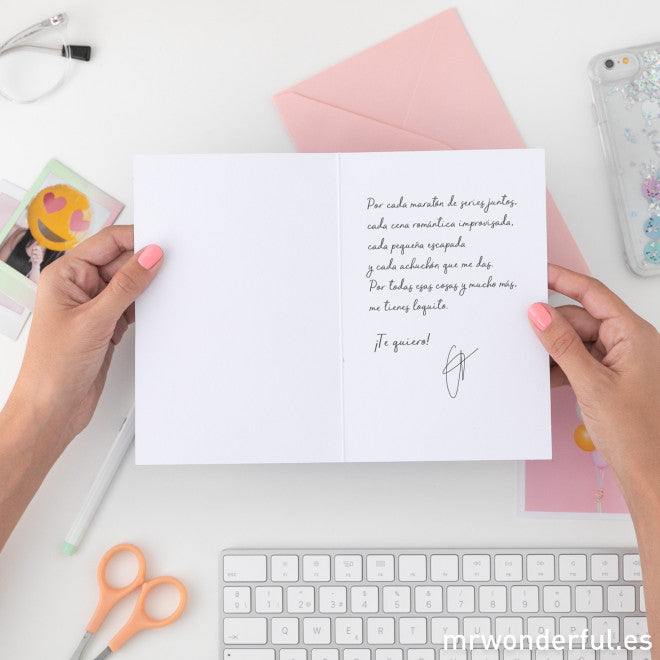 Por cada maratón de series juntos,
cada cena romántica improvisada,
cada pequeña escapada
y cada achuchón que me das.
Por todas esas cosas y mucho más,
me tienes loquito.
¡Te quiero!
esc
Q W E R T Y U I O P
mrwonderful.es